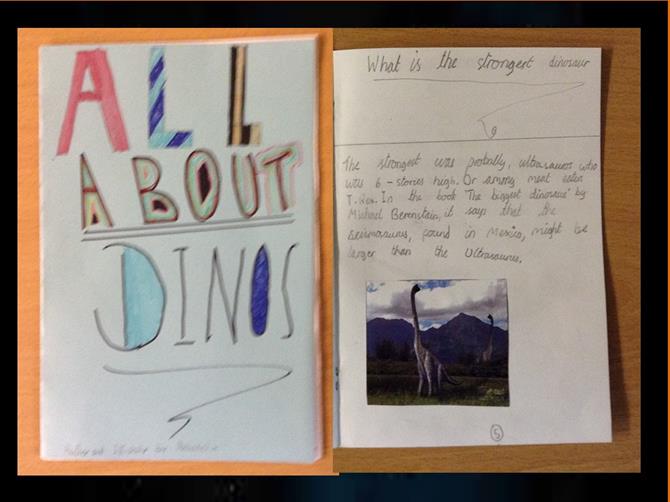 ALL
ABOUT
DINOS
What is the strongest dinosaur
The strongest was probally, ultrasauros who
was 6-stories high. Or among meat eaters
T. Rex. In the book 'The biggest dinosaur' by
Michael Berenstain, it says that the
Seismosaurus, found in Mexico, might be
larger than the Ultrasaurus.
5